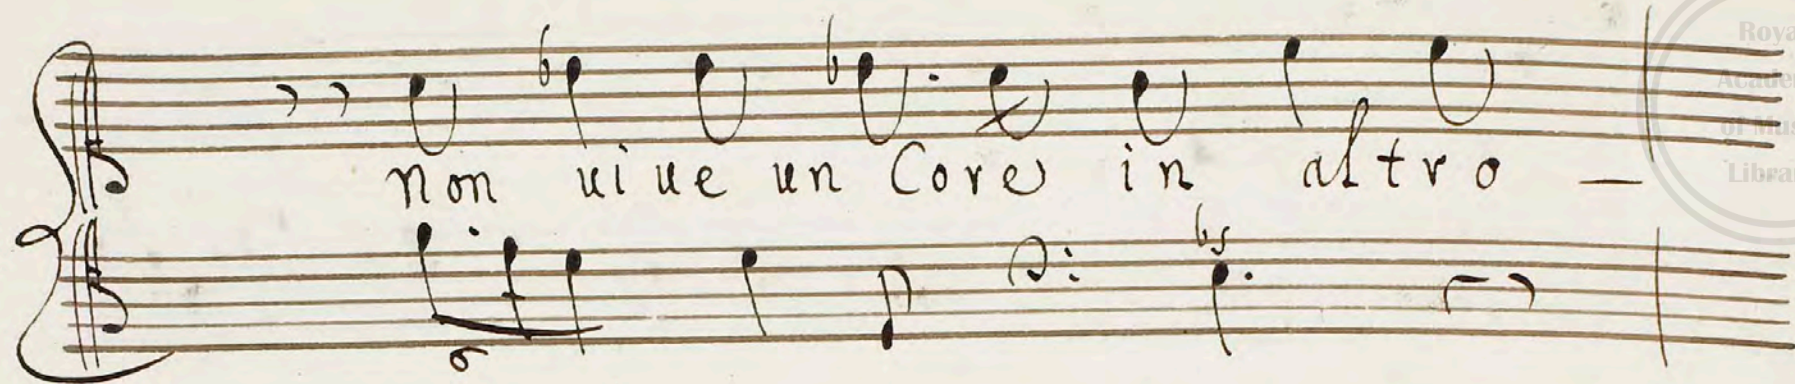 Royal
Academ
of Mus
Librar
non uiue un Core in altro —
6
b5